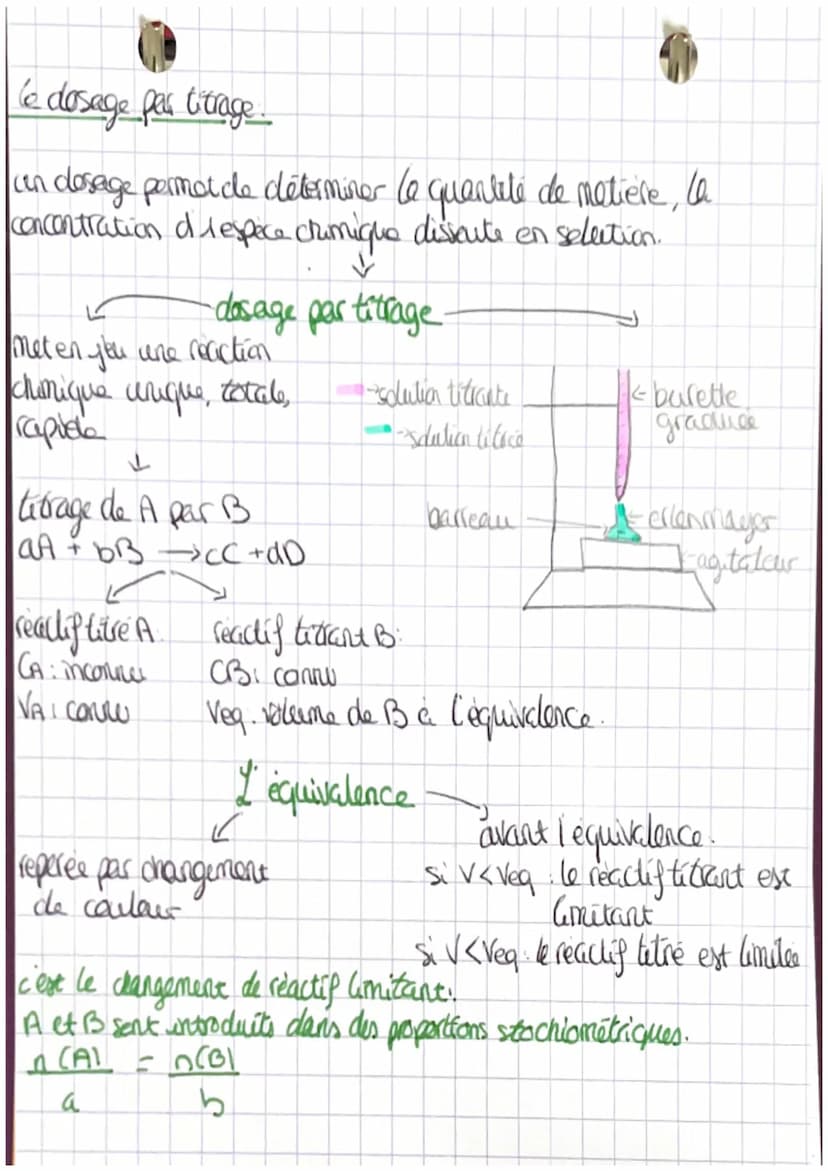 Le dosage par titrage.
un dosage permet de déterminer la quantité de matière, la
concentration d'1 espèce chimique dissoute en solution.
↓
dosage par titrage
met en jeu une réaction
chimique unique, totale,
rapide
↓
titrage de A par B
aA + bB → cC + dD
réactif titré A
CA : inconnu
VA : connu
réactif titrant B :
CB : connu
Veq : volume de B à l'équivalence.
→ solution titrante
→ solution titrée
← burette
graduée
barreau
erlenmayer
agitateur
L'équivalence
repérée par changement
de couleur
avant l'équivalence.
si V<Veq : le réactif titrant est
limitant
si V<Veq : le réactif titré est limitée
c'est le changement de réactif limitant.
A et B sont introduits dans des proportions stochiométriques.
n(A)/a = n(B)/b